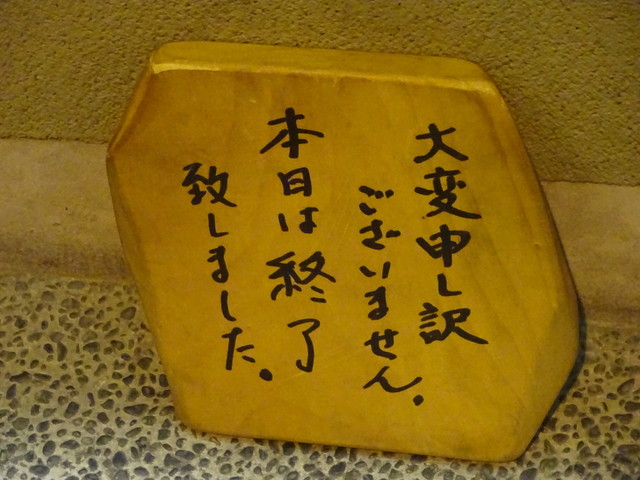 大変申し訳
ございません。
本日は終了
致しました。